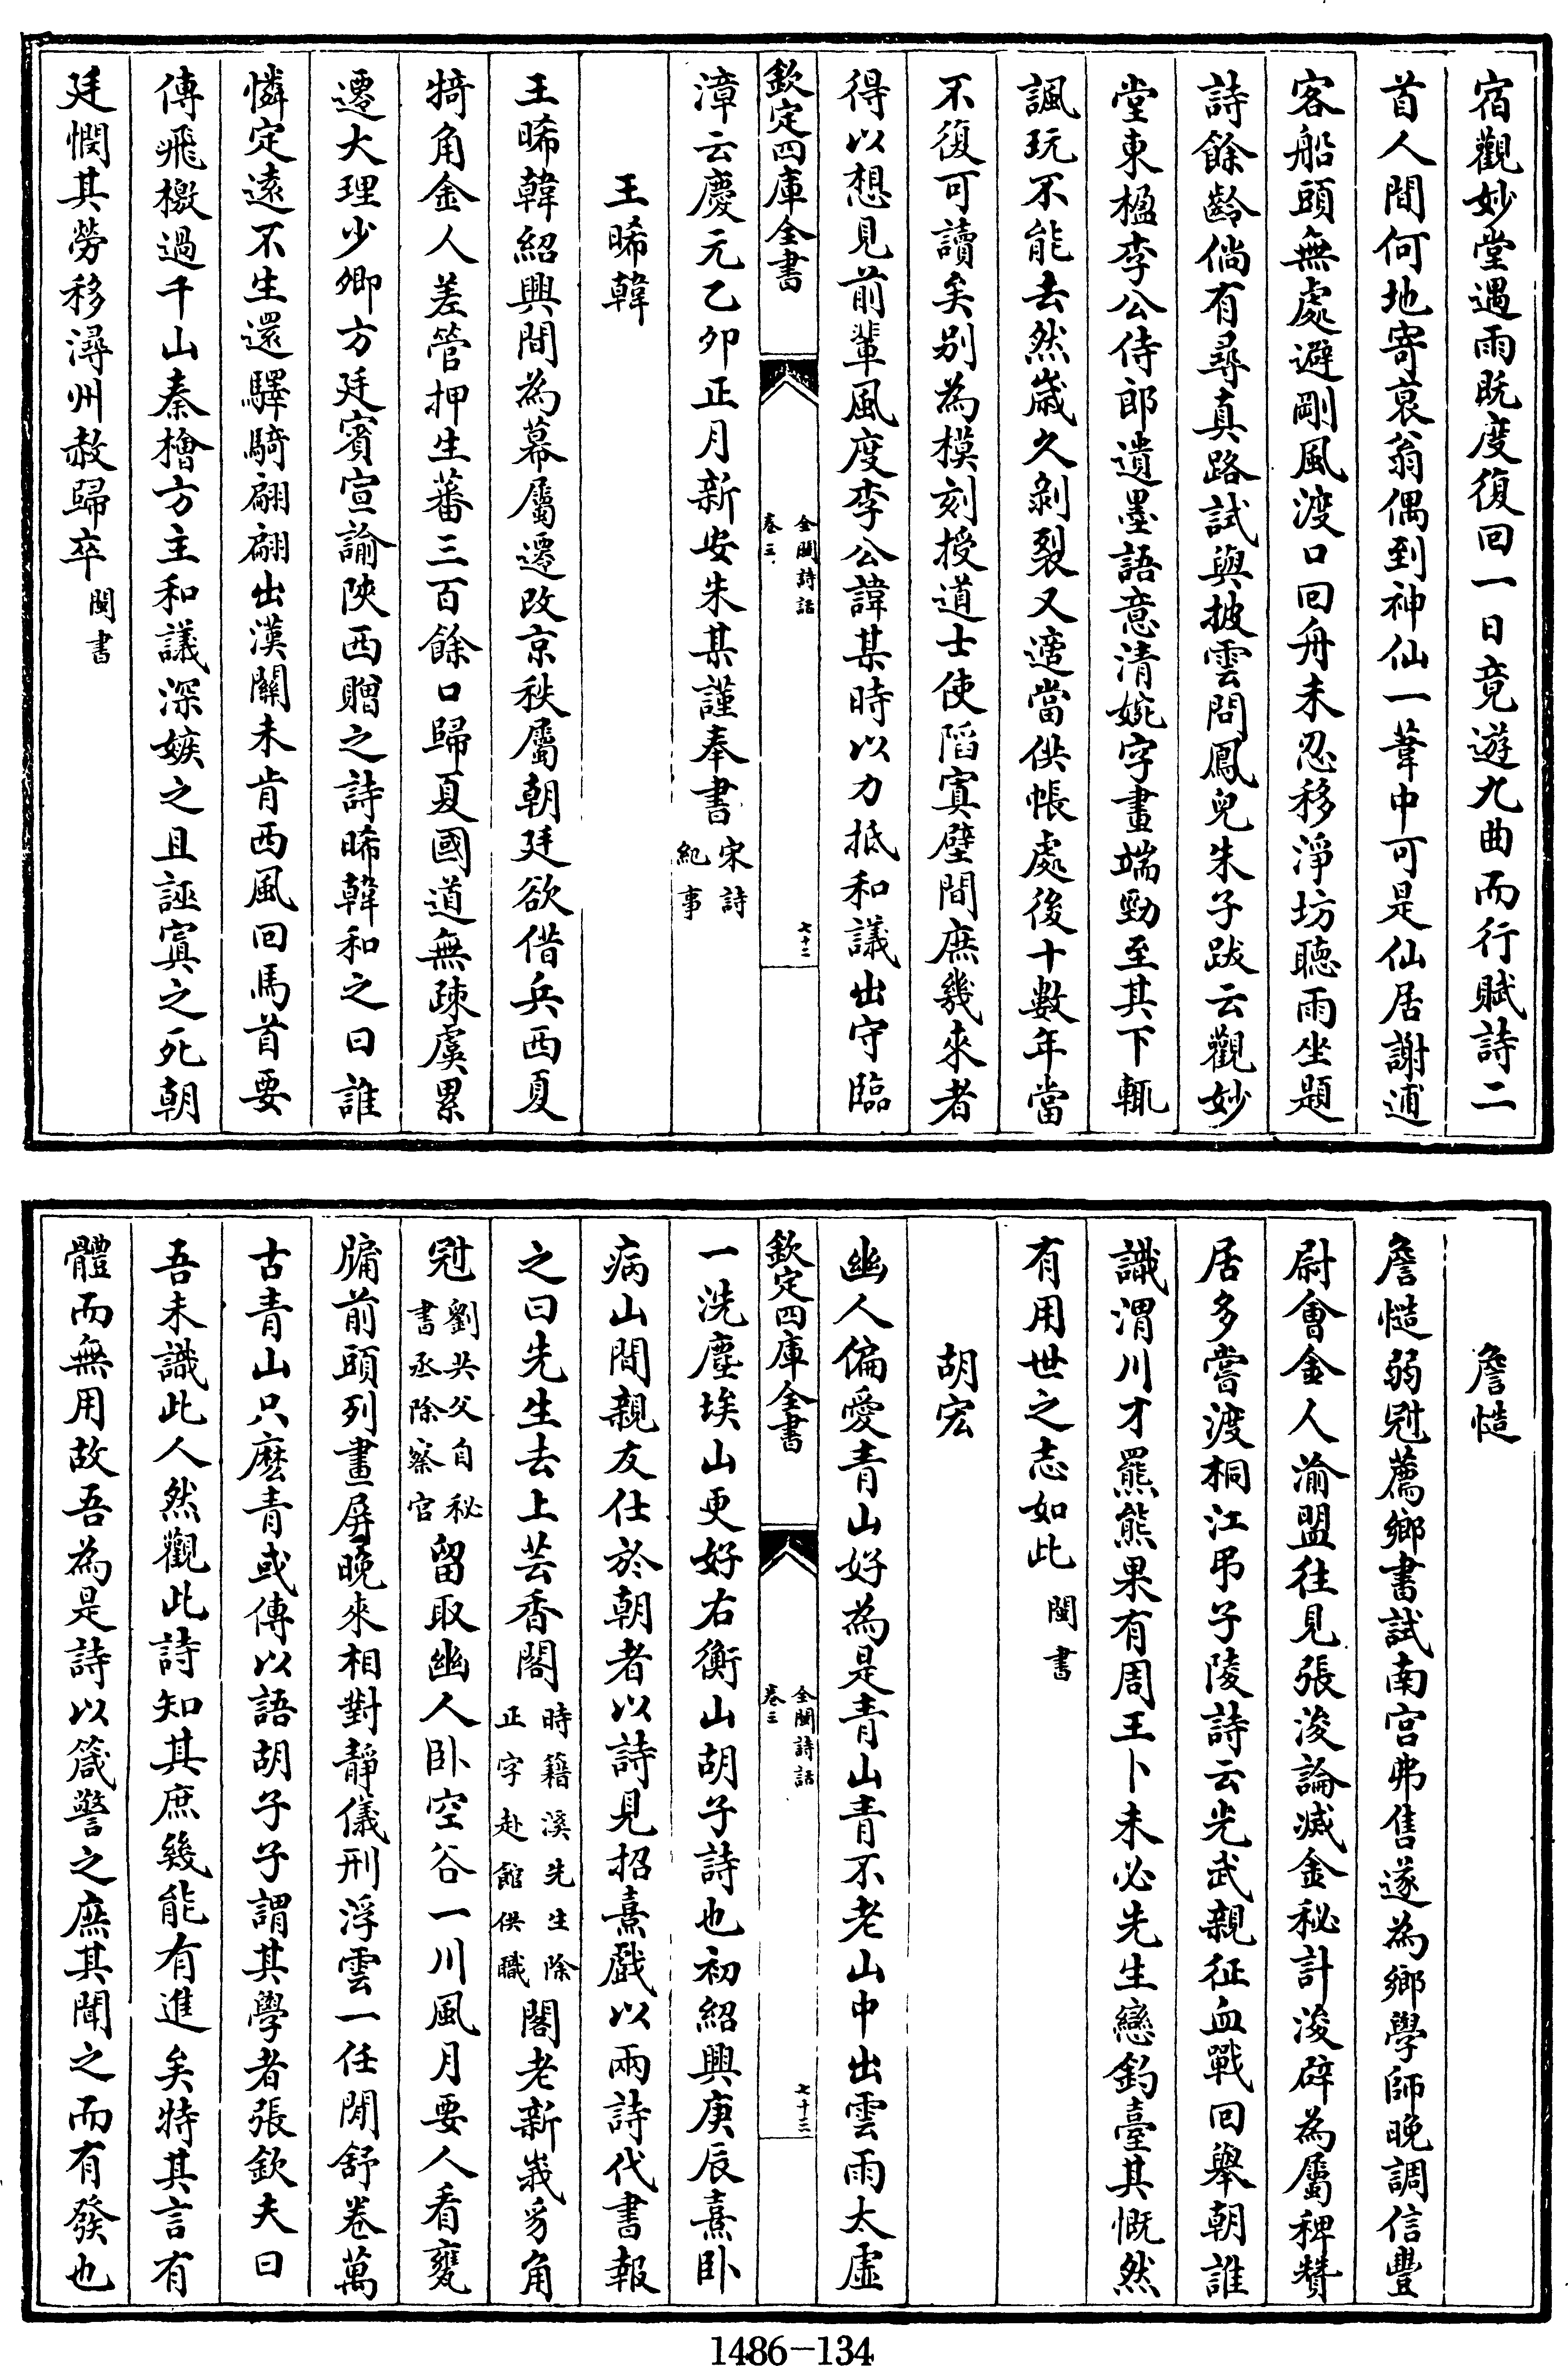 宿觀妙堂遇雨既度復回一日竟遊九曲而行賦詩二
首人間何地寄哀翁偶到神仙一葦中可是仙居謝逋
客船頭無處避剛風渡口回舟未忍移淨坊聽雨坐題
詩餘齡倘有尋真路試與披雲問鳳兒朱子跋云觀妙
堂東楹李公侍郎遺墨語意清婉字畫端勁至其下輒
諷玩不能去然嵗久剥裂又適當供帳處後十數年當
不復可讀矣别為模刻授道士使䧟寘壁間庶幾來者
得以想見前輩風度李公諱某時以力抵和議出守臨
欽定四庫全書
全閩詩話
卷三
七十二
漳云慶元乙卯正月新安朱某謹奉書宋詩
紀事
王晞韓
王晞韓紹興間為幕屬遷改京秩屬朝廷欲借兵西夏
犄角金人差管押生蕃三百餘口歸夏國道無疎虞累
遷大理少卿方廷賓宣諭陜西贈之詩晞韓和之曰誰
憐定遠不生還驛騎翩翩出漢關未肯西風回馬首要
傳飛檄過千山秦檜方主和議深嫉之且誣寘之死朝
廷憫其勞移潯州赦歸卒閩書
詹慥
詹慥弱冠薦鄉書試南宫弗售遂為鄉學師晚調信豐
尉會金人渝盟往見張浚論滅金秘計浚辟為屬稗贊
居多嘗渡桐江弔子陵詩云光武親征血戰回舉朝誰
識渭川才羆熊果有周王卜未必先生戀釣臺其慨然
有用世之志如此閩書
胡宏
幽人偏愛青山好為是青山青不老山中出雲雨太虛
欽定四庫全書
全閩詩話
卷三
七十三
一洗塵埃山更好右衡山胡子詩也初紹興庚辰熹卧
病山間親友仕於朝者以詩見招熹戲以兩詩代書報
之曰先生去上芸香閣時籍溪先生除
正字赴館供職閣老新峩豸角
冠劉共父自秘
書丞除察官留取幽人卧空谷一川風月要人看甕
牖前頭列畫屏晚來相對靜儀刑浮雲一任閒舒卷萬
古青山只麽青或傳以語胡子子謂其學者張欽夫曰
吾未識此人然觀此詩知其庶幾能有進矣特其言有
體而無用故吾為是詩以箴警之庶其聞之而有發也
1486-134